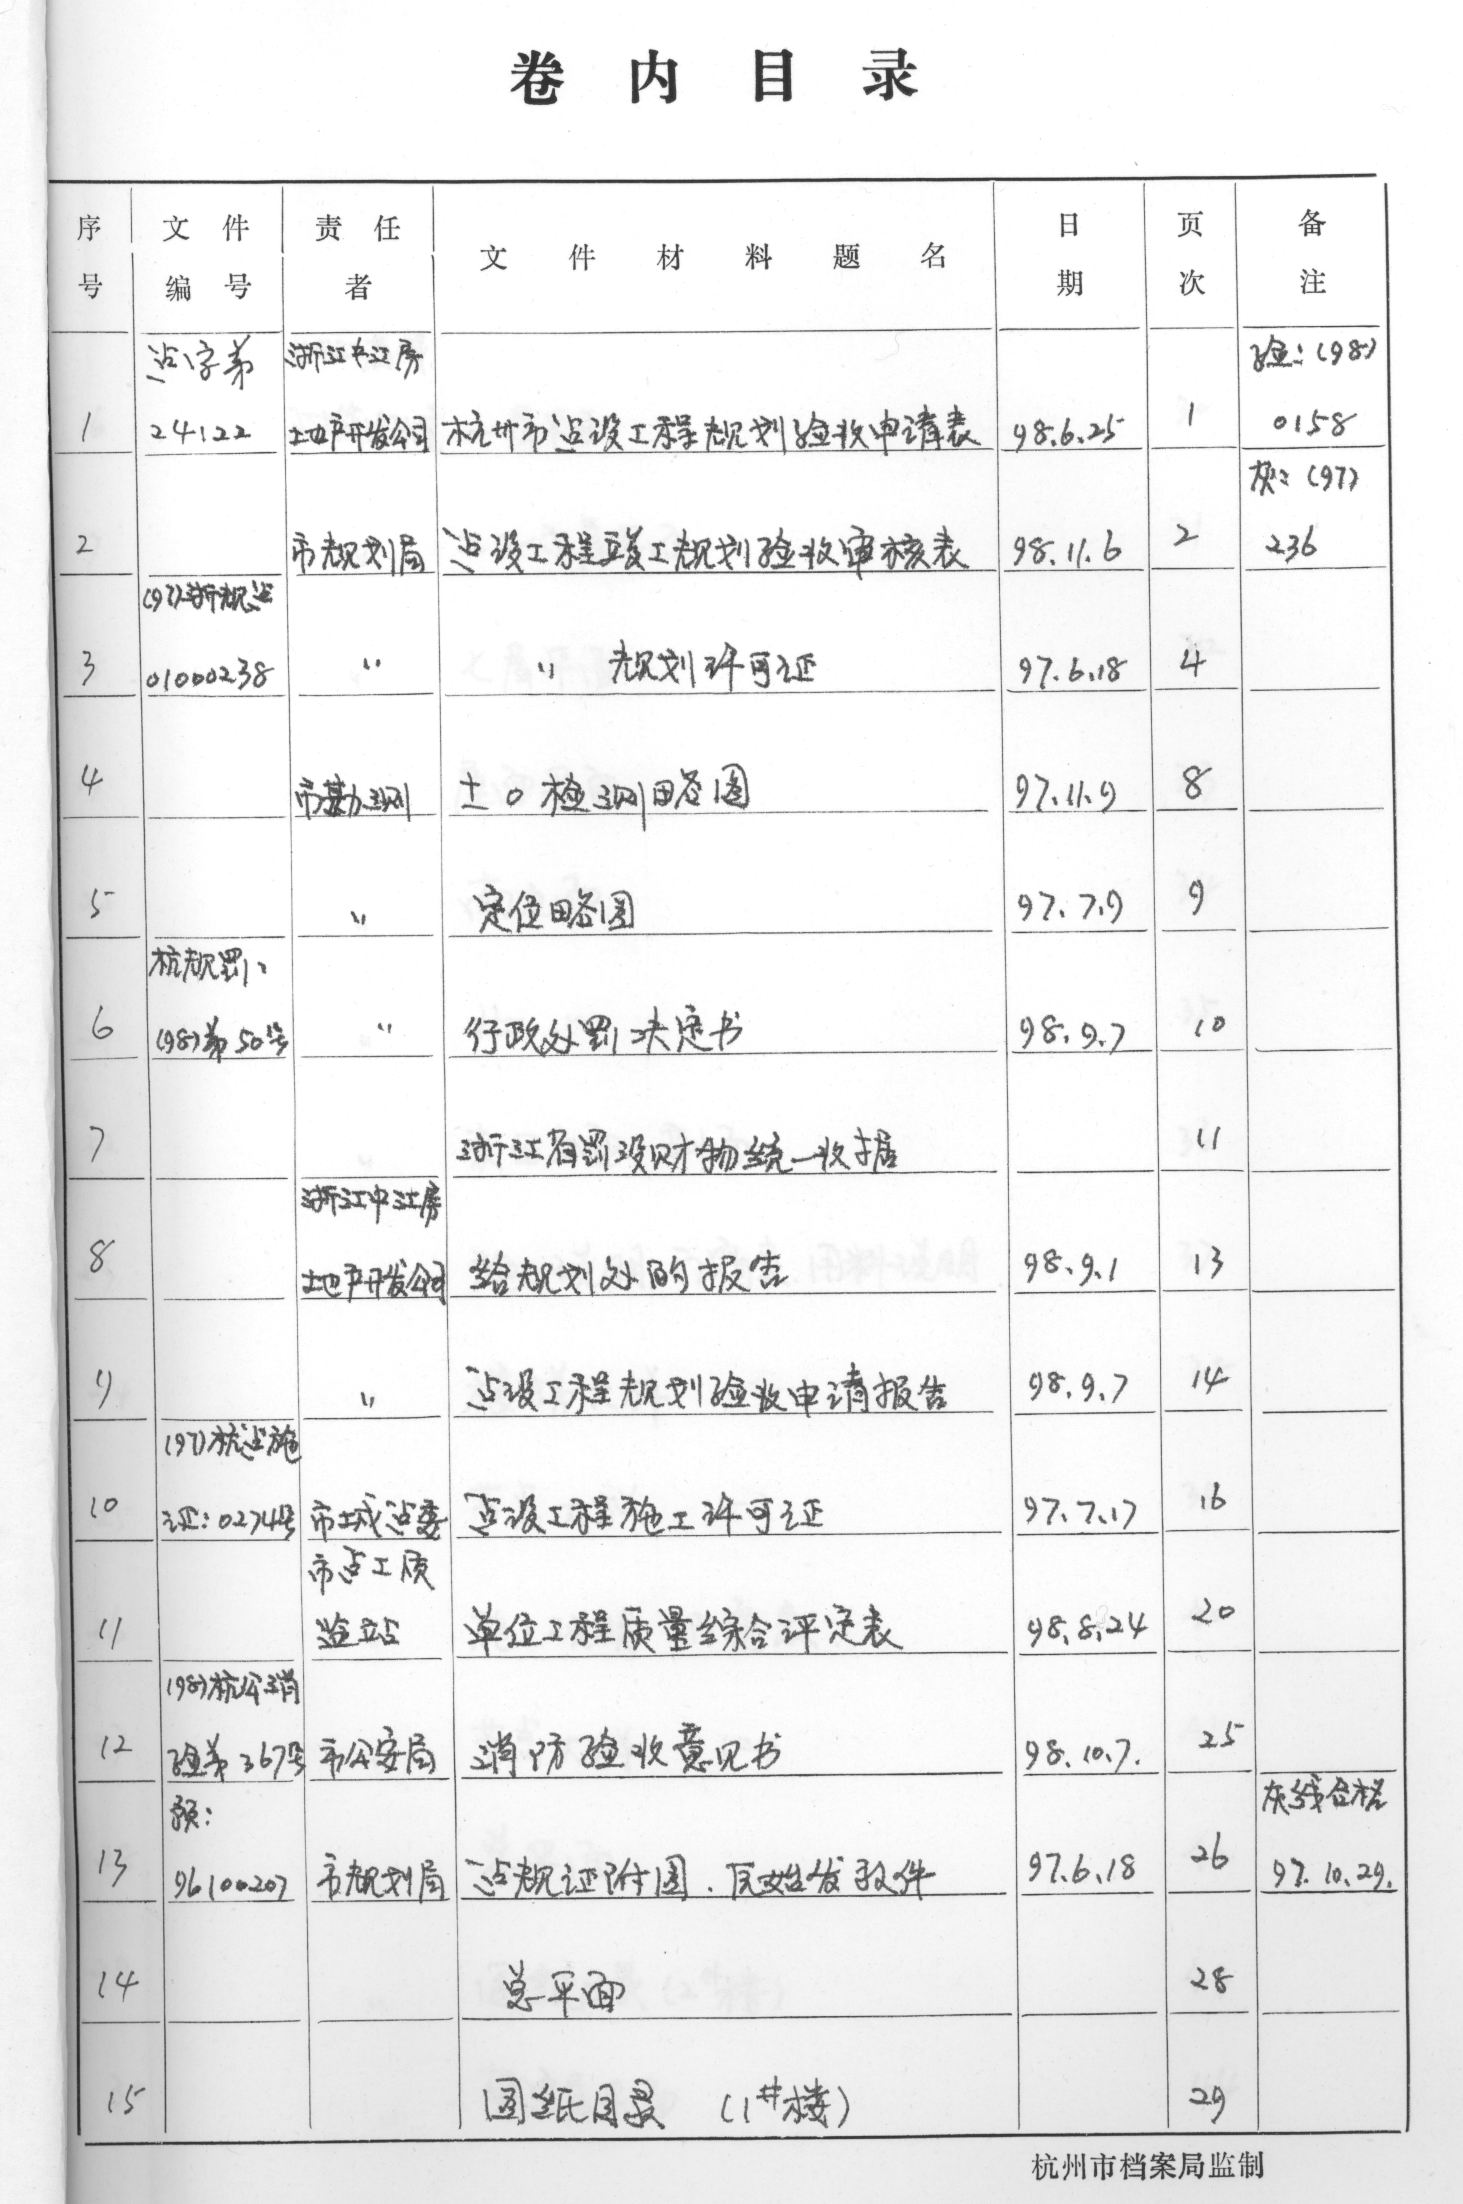 卷内目录
序号 文件编号 责任者 文件材料题名 日期 页次 备注
建字第 浙江中江房 验:(98)
1 24122 地产开发公司 杭州市建设工程规划验收申请表 98.6.25 1 0158
灰:(97)
2 市规划局 建设工程竣工规划验收审核表 98.11.6 2 236
(97)浙规建
3 01000238 〃 〃 规划许可证 97.6.18 4
4 市勘测 ±0检测略图 97.11.9 8
5 〃 定位略图 97.7.9 9
杭规罚:
6 (98)第50号 〃 行政处罚决定书 98.9.7 10
7 浙江省罚没财物统一收据 11
浙江中江房
8 地产开发公司 给规划处的报告 98.9.1 13
9 〃 建设工程规划验收申请报告 98.9.7 14
(97)杭建施
10 证:0274号 市城建委 建设工程施工许可证 97.7.17 16
市建工质
11 监站 单位工程质量综合评定表 98.8.24 20
(98)杭公消
12 验第367号 市公安局 消防验收意见书 98.10.7. 25
预: 灰线合格
13 96100207 市规划局 建规证附图.原始发放件 97.6.18 26 97.10.29.
14 总平面 28
15 图纸目录 (1#楼) 29
杭州市档案局监制